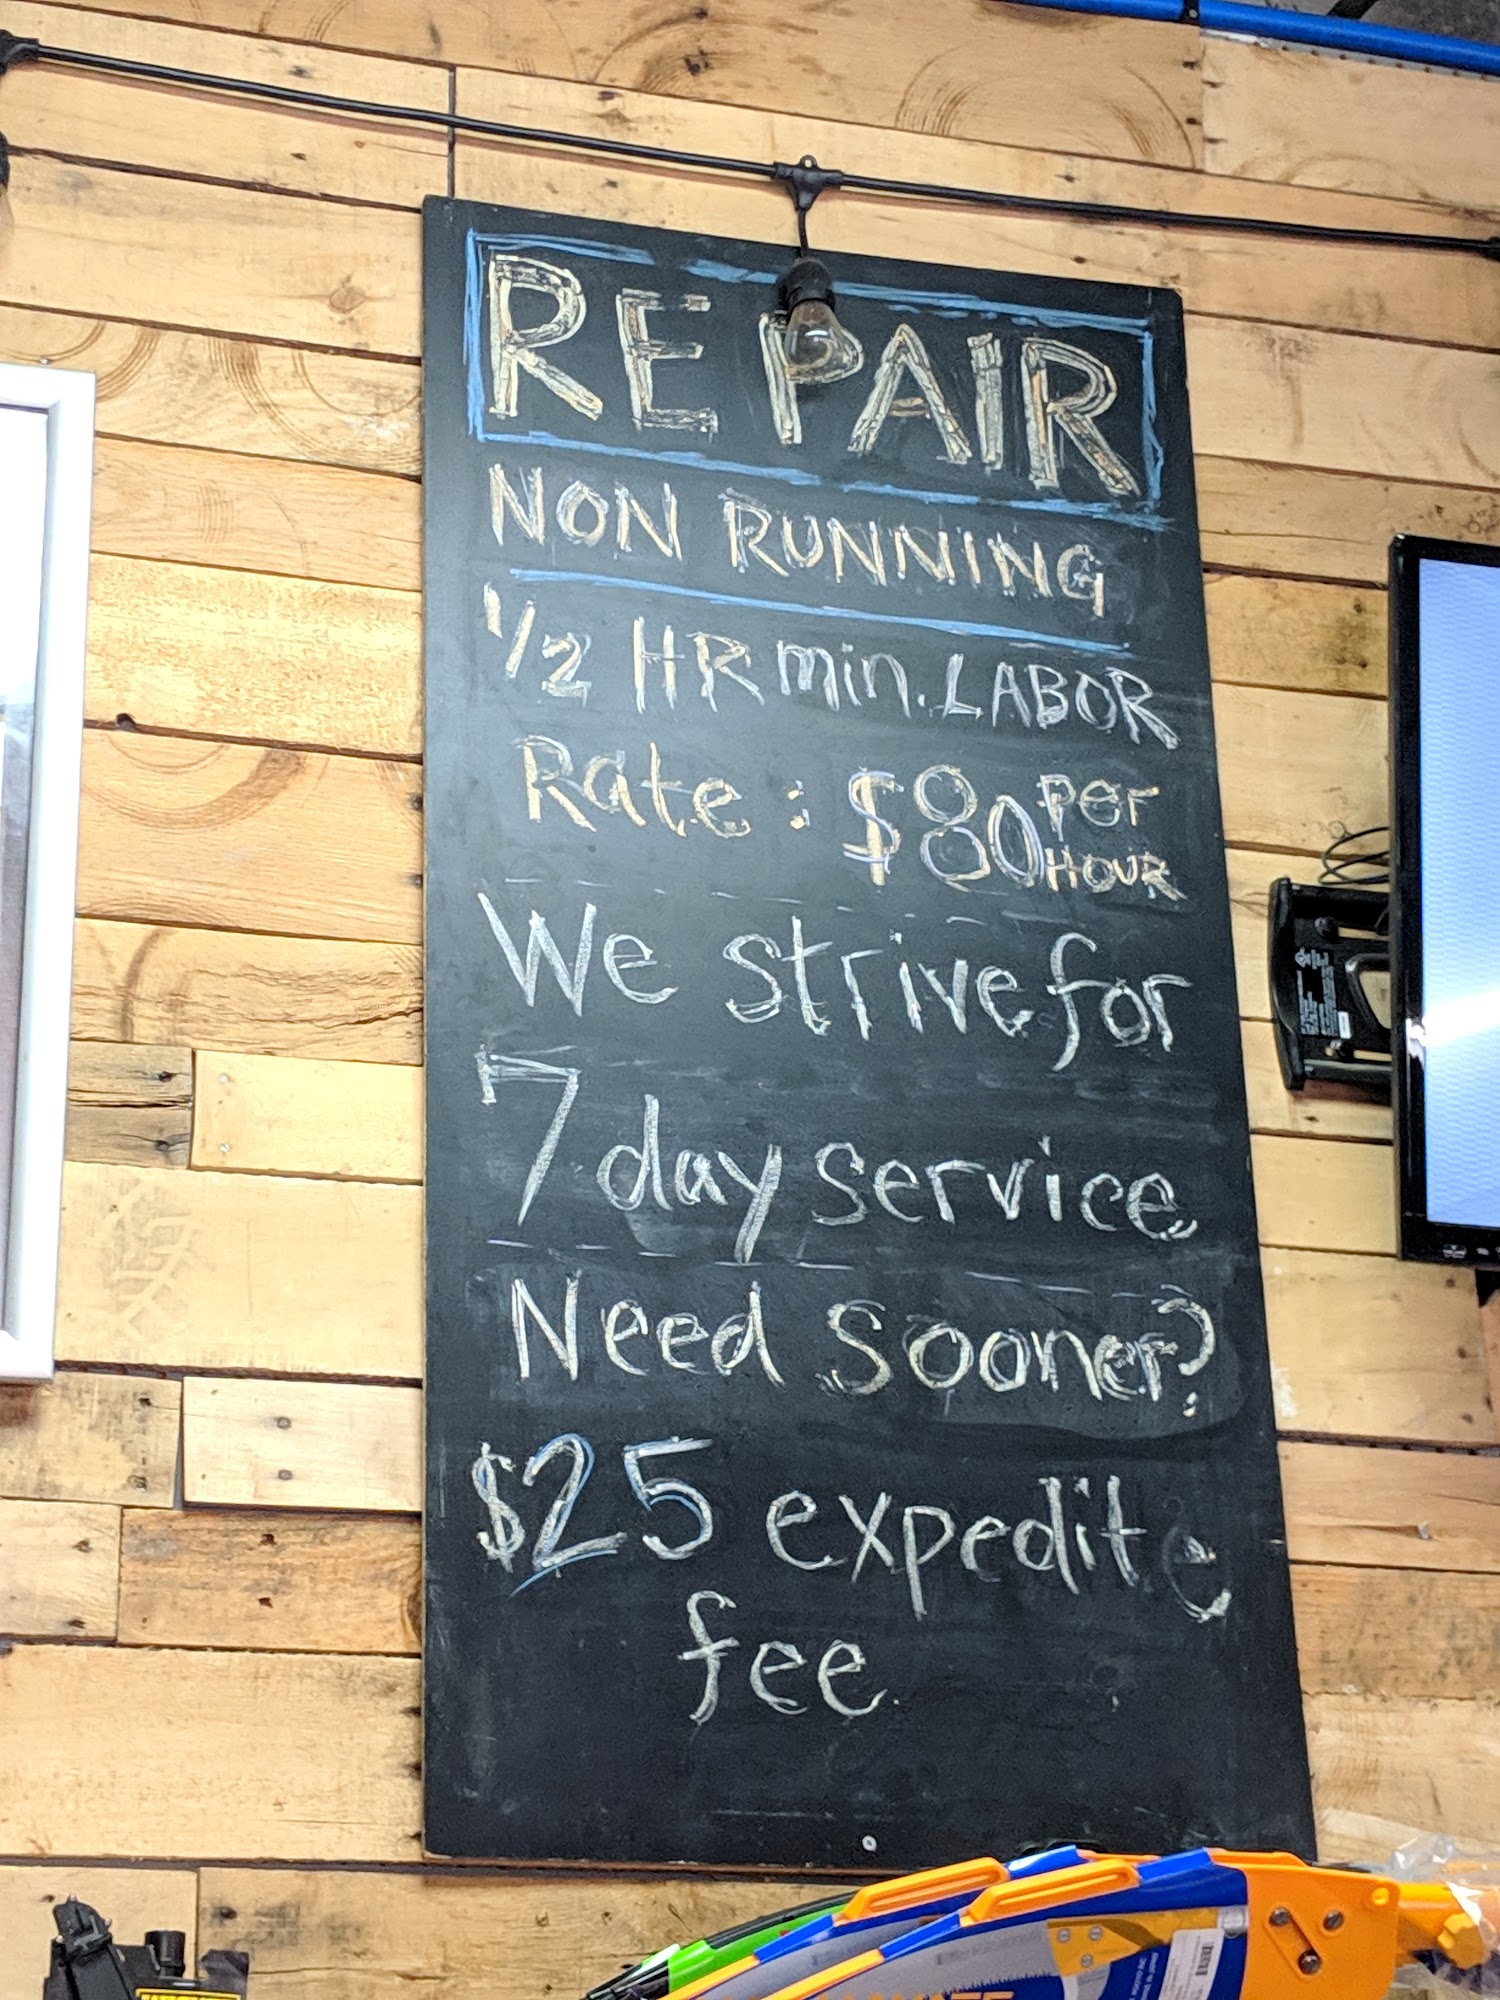 REPAIR
NON RUNNING
1/2 HR min. LABOR
Rate : $80 PER HOUR
We strive for
7 day service
Need sooner?
$25 expedite
fee